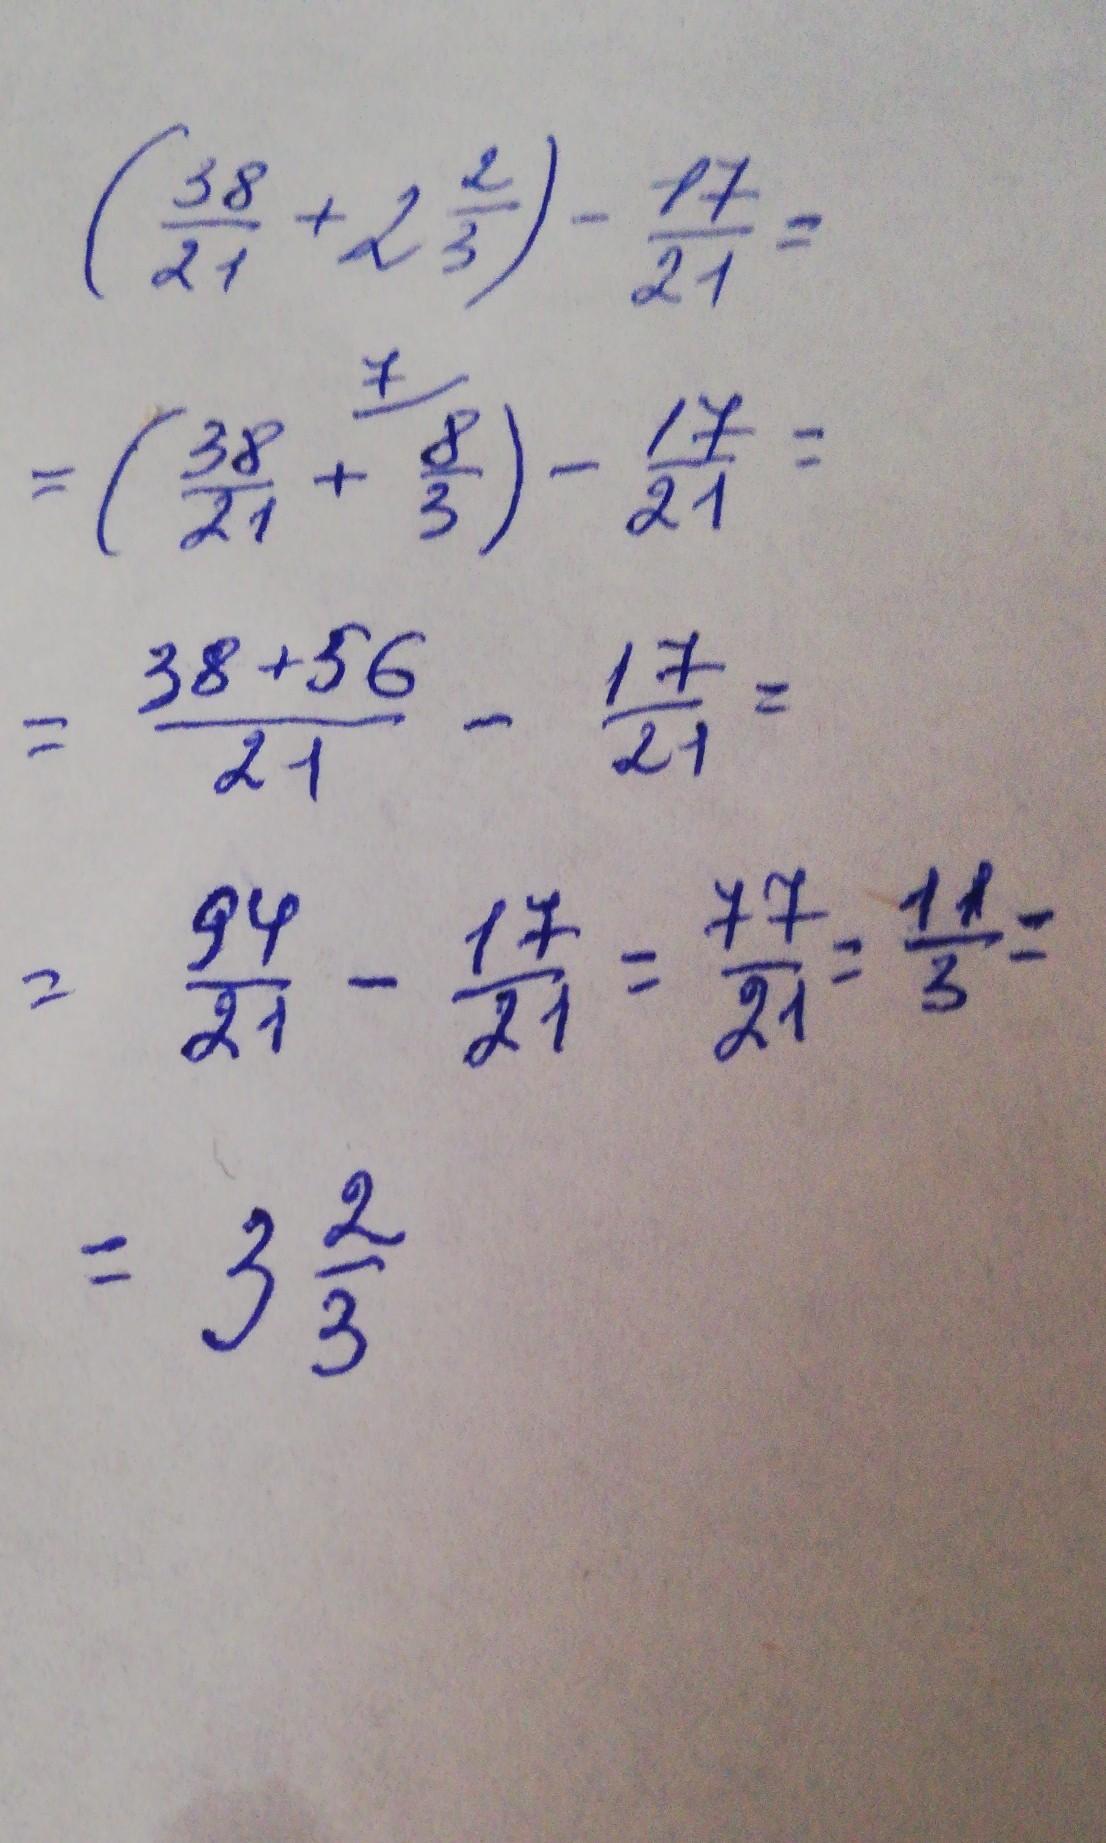 (38/21 + 2 2/3) - 17/21 =
= (38/21 + 8/3 ⁷) - 17/21 =
= (38+56)/21 - 17/21 =
= 94/21 - 17/21 = 77/21 = 11/3 =
= 3 2/3